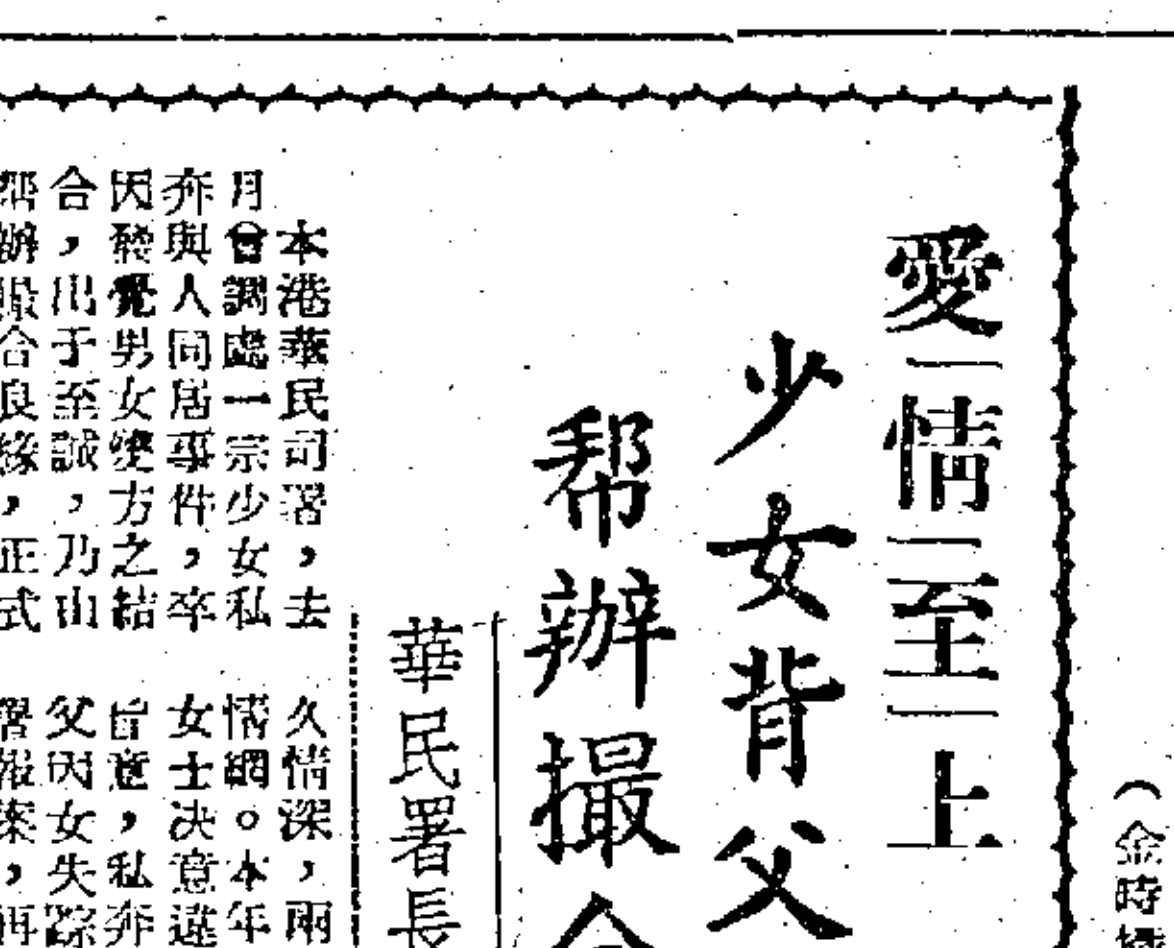 （金時
愛情至上
少女背父
幇辦撮合
華民署長
本港華民司署，去
月曾調處一宗少女私
奔與人同居事件，卒
因發覺男女雙方之結
合，出于至誠，乃由
幇辦撮合良緣，正式
久情深，兩
情網。本年
女士决意違
旨意，私奔
父因女失踪
署報案，再